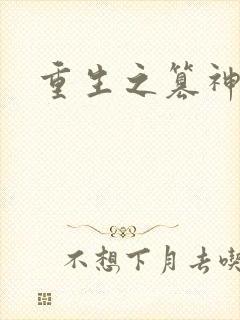 重生之篡神
不想下月去喫